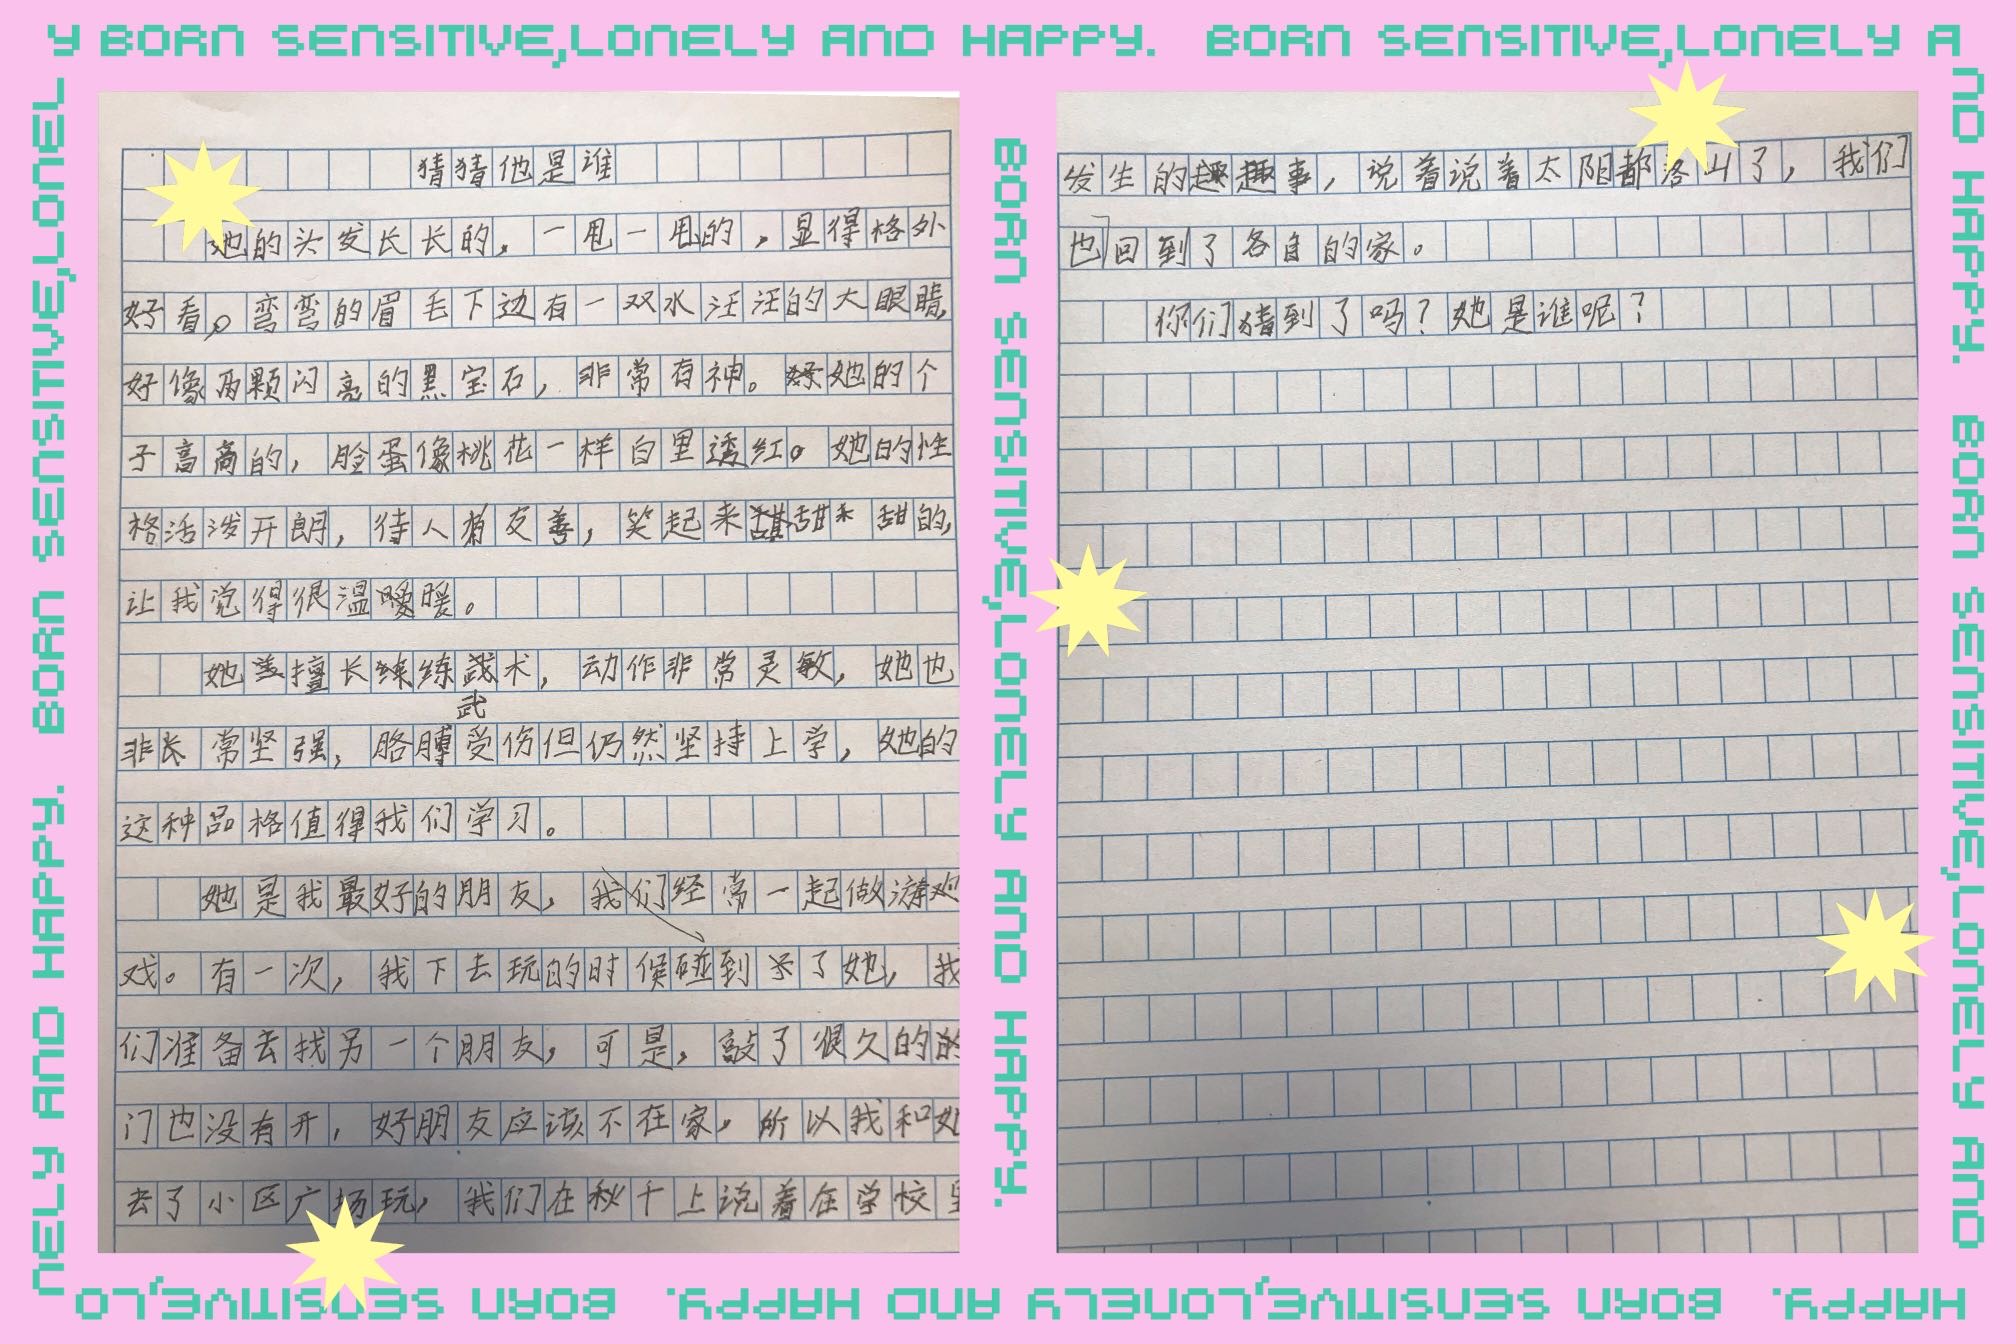 Y BORN SENSITIVE,LONELY AND HAPPY. BORN SENSITIVE,LONELY A
ND HAPPY. BORN SENSITIVE,LONELY AND
HAPPY. BORN SENSITIVE,LONELY AND HAPPY. BORN SENSITIVE,LO
NELY AND HAPPY. BORN SENSITIVE,LONEL
猜猜他是谁
她的头发长长的，一甩一甩的，显得格外
好看。弯弯的眉毛下边有一双水汪汪的大眼睛，
好像两颗闪亮的黑宝石，非常有神。她的个
子高高的，脸蛋像桃花一样白里透红。她的性
格活泼开朗，待人友善，笑起来甜甜的，
让我觉得很温暖。
她擅长练武术，动作非常灵敏，她也
非常坚强，胳膊受伤但仍然坚持上学，她的
这种品格值得我们学习。
她是我最好的朋友，我们经常一起做游
戏。有一次，我下去玩的时候碰到了她，我
们准备去找另一个朋友，可是，敲了很久的
门也没有开，好朋友应该不在家，所以我和她
去了小区广场玩，我们在秋千上说着在学校里
BORN SENSITIVE,LONELY AND HAPPY.
发生的趣事，说着说着太阳都落山了，我们
也回到了各自的家。
你们猜到了吗？她是谁呢？